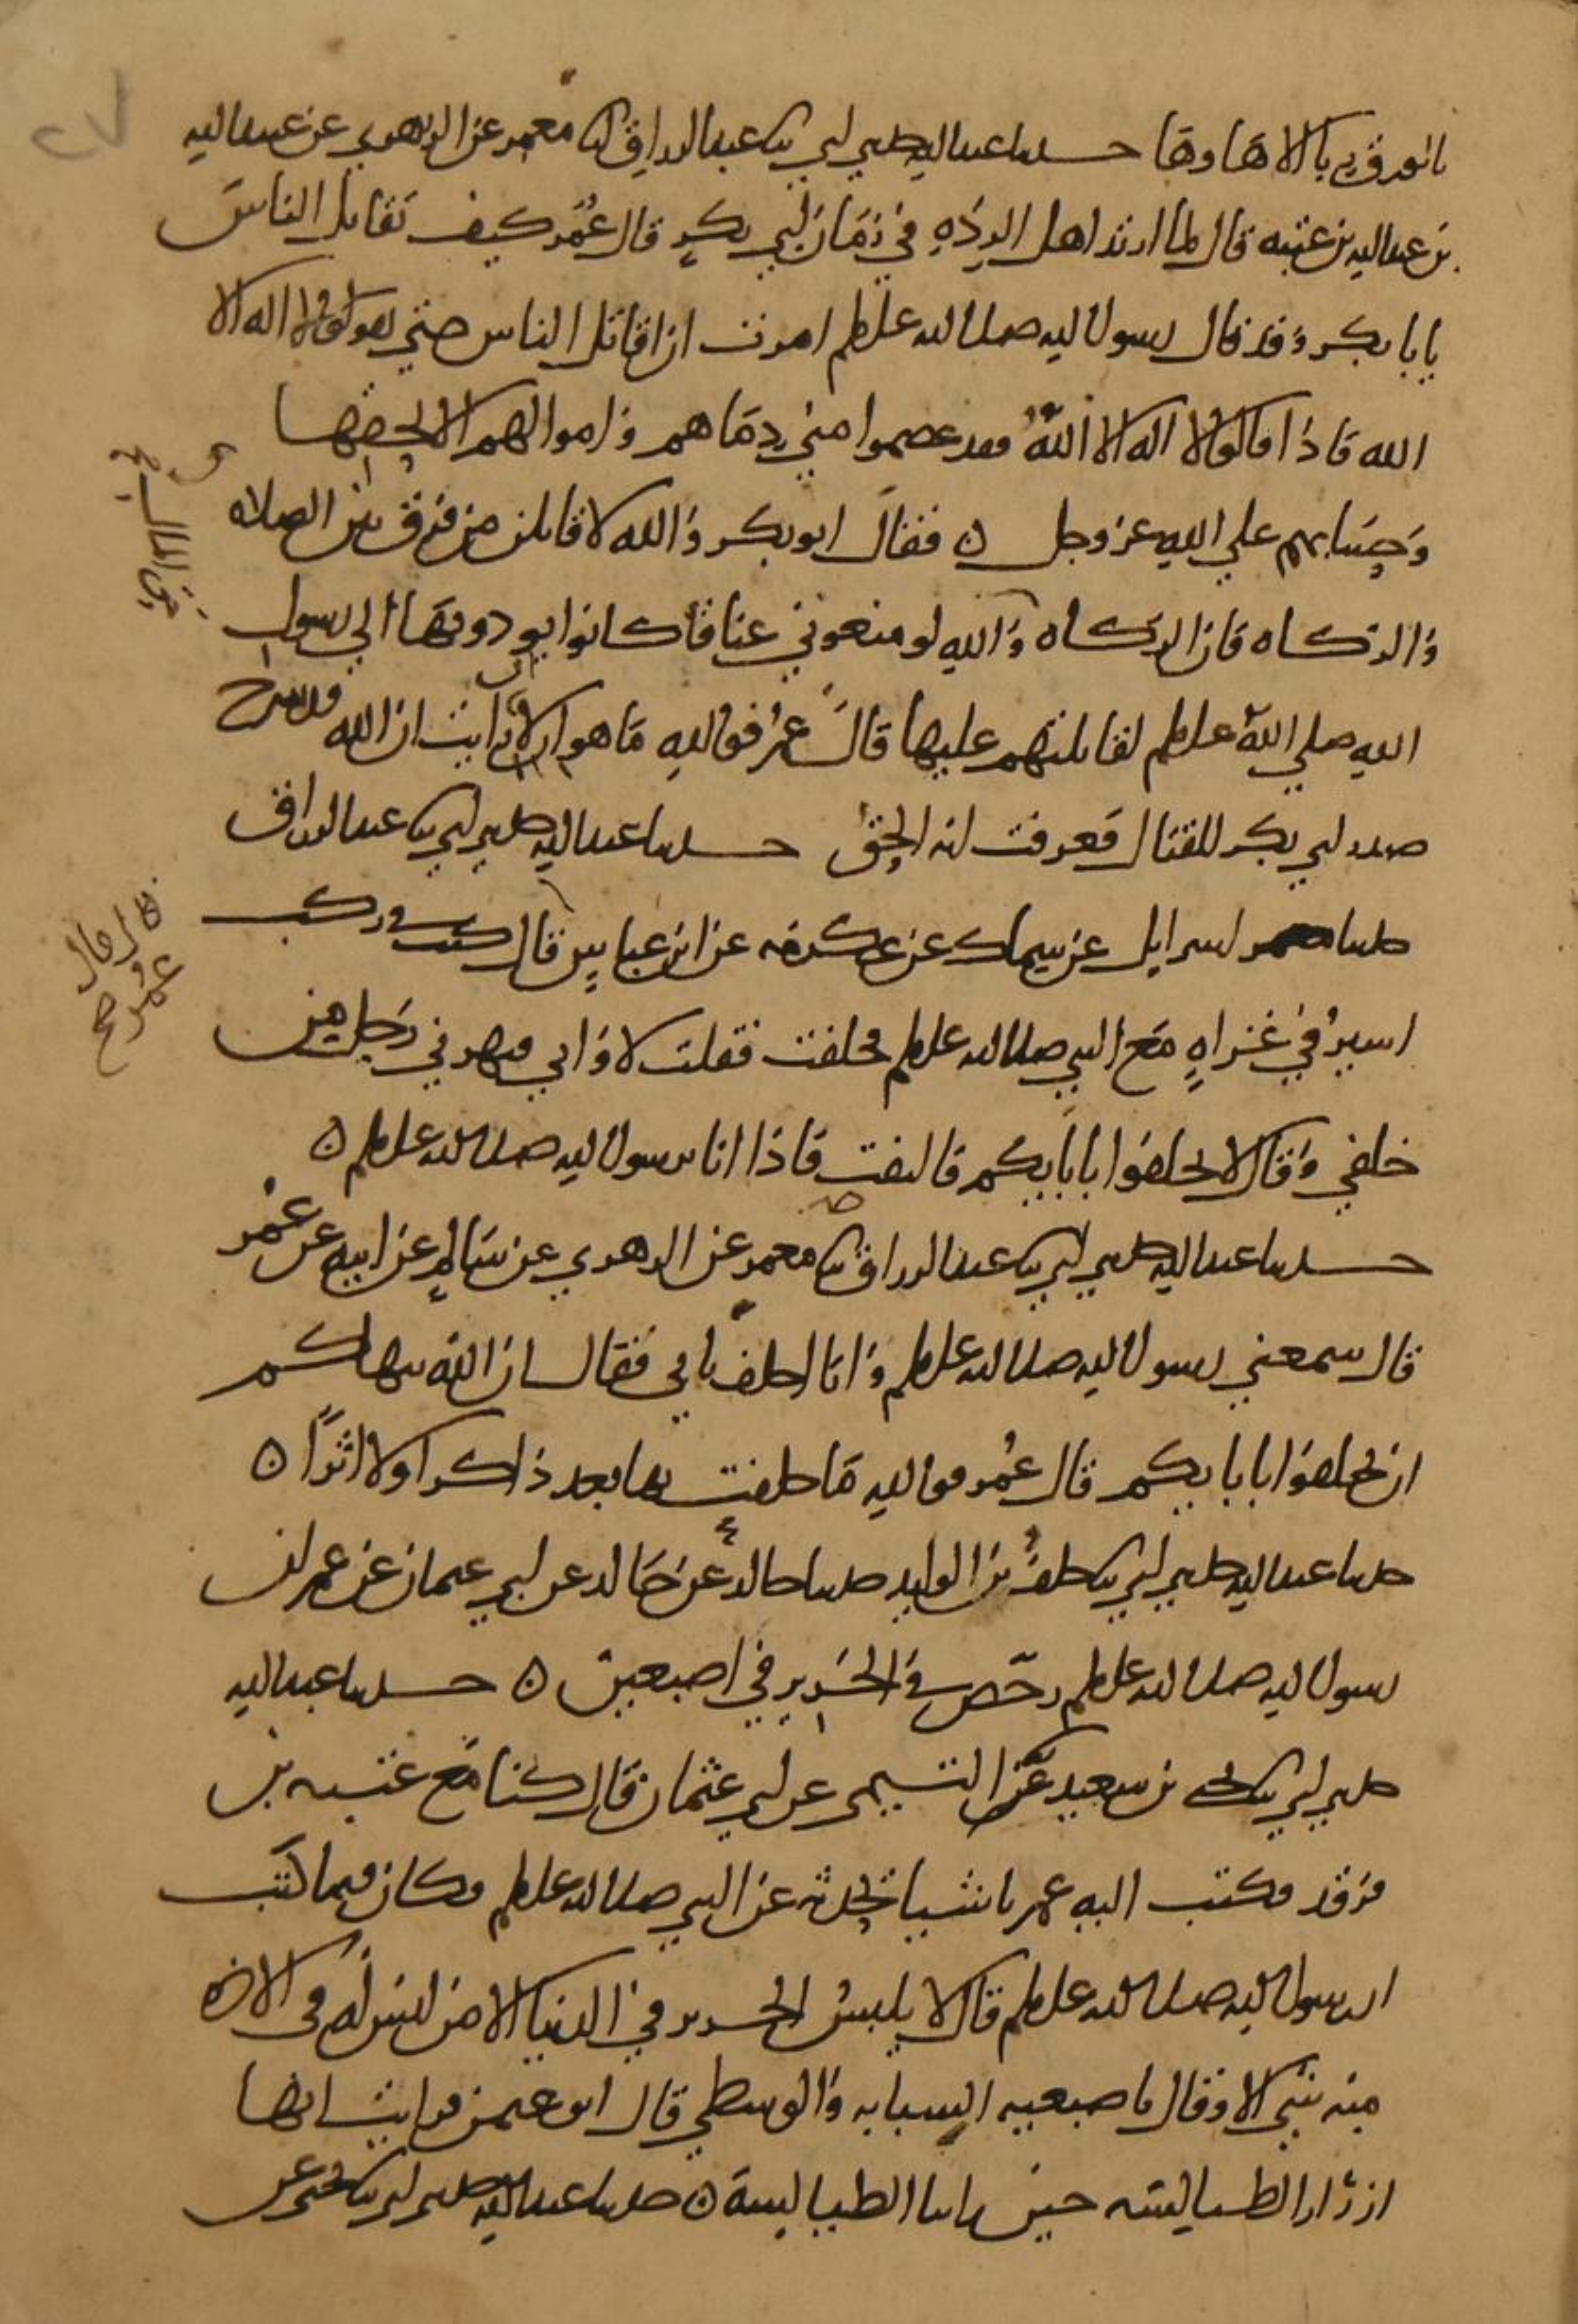 بالورق ربا الا ها وها حدثنا عبد الله حدثني ابي نا عبد الرزاق انا معمر عن الزهري عن عبيد الله
بن عبد الله بن عتبه قال لما ارتد اهل الرده في زمان ابي بكر قال عمر كيف تقاتل الناس
يابا بكر وقد قال رسول الله صلى الله عليه وسلم امرت ان اقاتل الناس حتي يقولوا لا اله الا
الله فاذا قالوا لا اله الا الله فقد عصموا مني دماهم واموالهم الا بحقها
وحسابهم علي الله عز وجل ه فقال ابو بكر والله لاقاتلن من فرق بين الصلاه
والزكاه فان الزكاه والله لو منعوني عناقا كانوا يودونها الي رسول
الله صلي الله عليه وسلم لقاتلتهم عليها قال عمر فوالله ما هو الا ان رايت ان الله قد شرح
صدر ابي بكر للقتال فعرفت انه الحق حدثنا عبد الله حدثني ابي نا عبد الرزاق
حدثنا اسرايل عن سماك عن عكرمه عن ابن عباس قال كنت في ركب
اسير في غزاه مع النبي صلى الله عليه وسلم فحلفت فقلت لا وابي فنهرني رجل من
خلفي وقال لا تحلفوا بابايكم فالتفت فاذا انا برسول الله صلى الله عليه وسلم ه
حدثنا عبد الله حدثني ابي نا عبد الرزاق نا معمر عن الزهري عن سالم عن ابيه عن عمر
قال سمعني رسول الله صلى الله عليه وسلم وانا احلف بابي فقال ان الله ينهاكم
ان تحلفوا بابايكم قال عمر فوالله ما حلفت بها بعد ذاكرا ولا اثرا ه
حدثنا عبد الله حدثني ابي نا خلف بن الوليد حدثنا خالد عن خالد عن ابي عثمان عن عمر ان
رسول الله صلى الله عليه وسلم رخص في الحرير في اصبعين ه حدثنا عبد الله
حدثني ابي نا يحيي بن سعيد عن التيمي عن ابي عثمان قال كنا مع عتبه بن
فرقد فكتب اليه عمر باشيا يحدثه عن النبي صلى الله عليه وسلم فكان فيما كتب
ان رسول الله صلى الله عليه وسلم قال لا يلبس الحرير في الدنيا الا من ليس له في الاخره
منه شي الا وقال باصبعيه السبابه والوسطي قال ابو عثمن فرايت انها
ازرار الطيالسه حين راينا الطيالسة ه حدثنا عبد الله حدثني ابي نا يحيي عن
حق المال
قال قال
عمر صح
٢٧